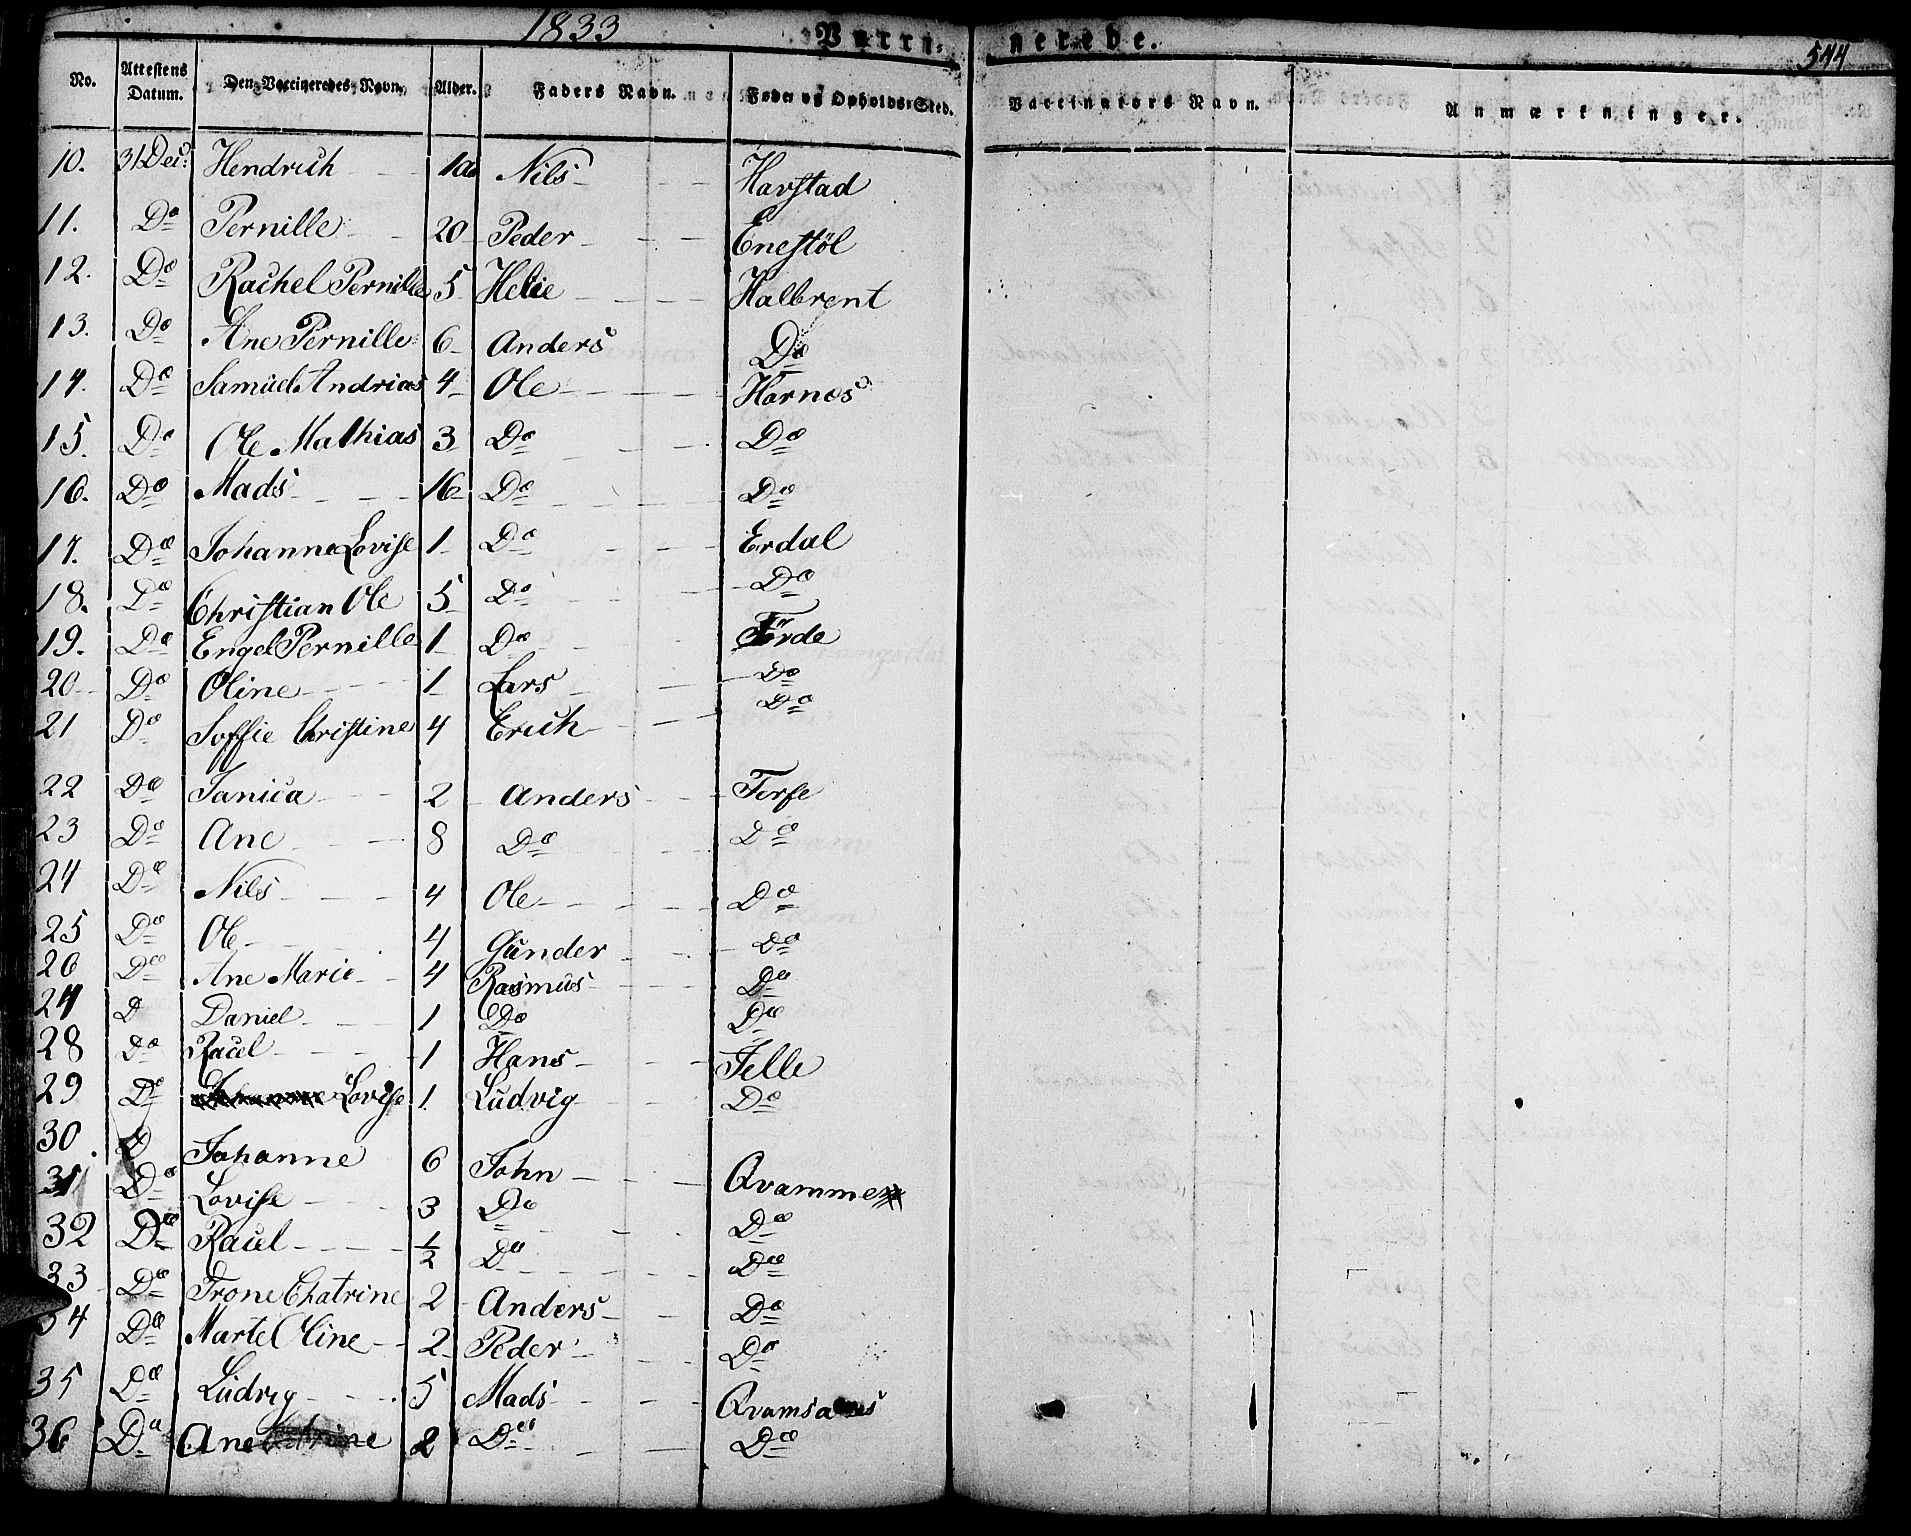 1833 Vacci= nerede. 544
No. Attestens Datum. Den Vaccineredes Navn. Alder. Faders Navn. Føde og Opholds-Sted. Vaccinators Navn. Anmærkninger.
10. 31 Dec: Hendrich Nils Havstad
11. Do Pernille 20 Peder Enestöl
12. Do Rachel Pernille 5 Helie Halbrent
13. Do Ane Pernille 6 Anders Do
14. Do Samuel Andrias 4 Ole Hornes
15. Do Ole Mathias 3 Do Do
16. Do Mads 16 Do Do
17. Do Johanne Lovise 1 Do Erdal
18. Do Christian Ole 5 Do Do
19. Do Engel Pernille 1 Do Förde
20 Do Oline 1 Lars Do
21 Do Soffie Christine 4 Erich Do
22 Do Janica 2 Anders Terse
23 Do Ane 8 Do Do
24 Do Nils 4 Ole Do
25 Do Ole 4 Gunder Do
26 Do Ane Marie 4 Rasmus Do
27 D Daniel 1 Do Do
28 Do Raael 1 Hans Felle
29 Do Lovise 1 Ludvig Do
30. D Johanne 6 John Qvamme
31 Do Lovise 3 Do Do
32 Do Rael 1/2 Do Do
33 Do Trone Chatrine 2 Anders Do
34 Do Marte Oline 2 Peder Do
35 Do Ludvig 5 Mads Qvamsanes
36 Do Ane 2 Do Do